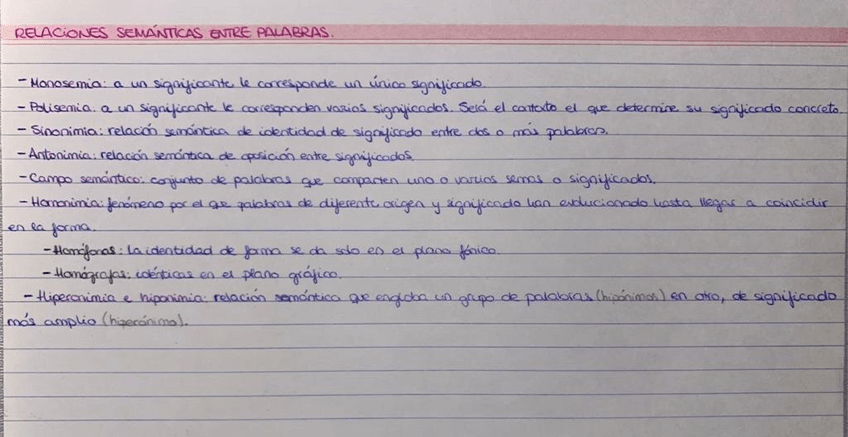 RELACIONES SEMÁNTICAS ENTRE PALABRAS.
- Monosemia: a un significante le corresponde un único significado.
- Polisemia: a un significante le corresponden varios significados. Será el contexto el que determine su significado concreto.
- Sinonimia: relación semántica de identidad de significado entre dos o más palabras.
- Antonimia: relación semántica de oposición entre significados.
- Campo semántico: conjunto de palabras que comparten uno o varios semas o significados.
- Homonimia: fenómeno por el que palabras de diferente origen y significado han evolucionado hasta llegar a coincidir
en la forma.
- Homófonas: la identidad de forma se da solo en el plano fónico.
- Homógrafas: idénticas en el plano gráfico.
- Hiperonimia e hiponimia: relación semántica que engloba un grupo de palabras (hipónimos) en otro, de significado
más amplio (hiperónimo).